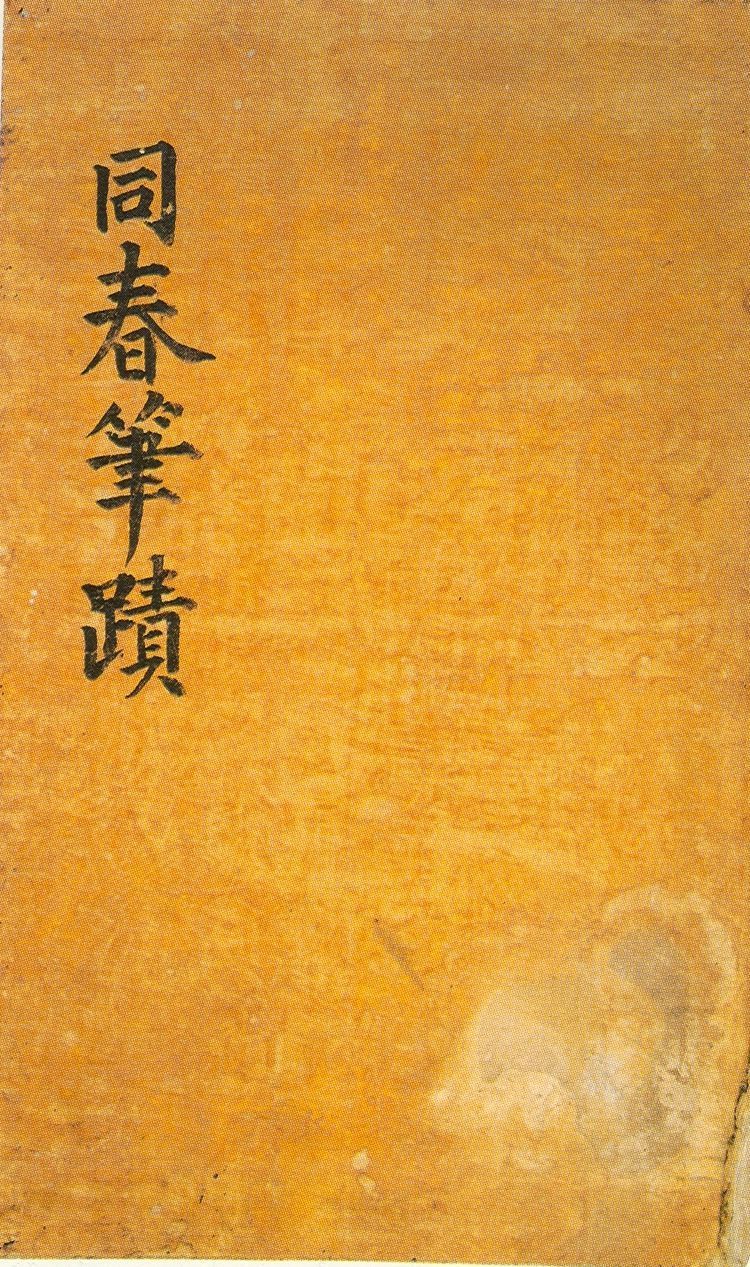 同春筆蹟